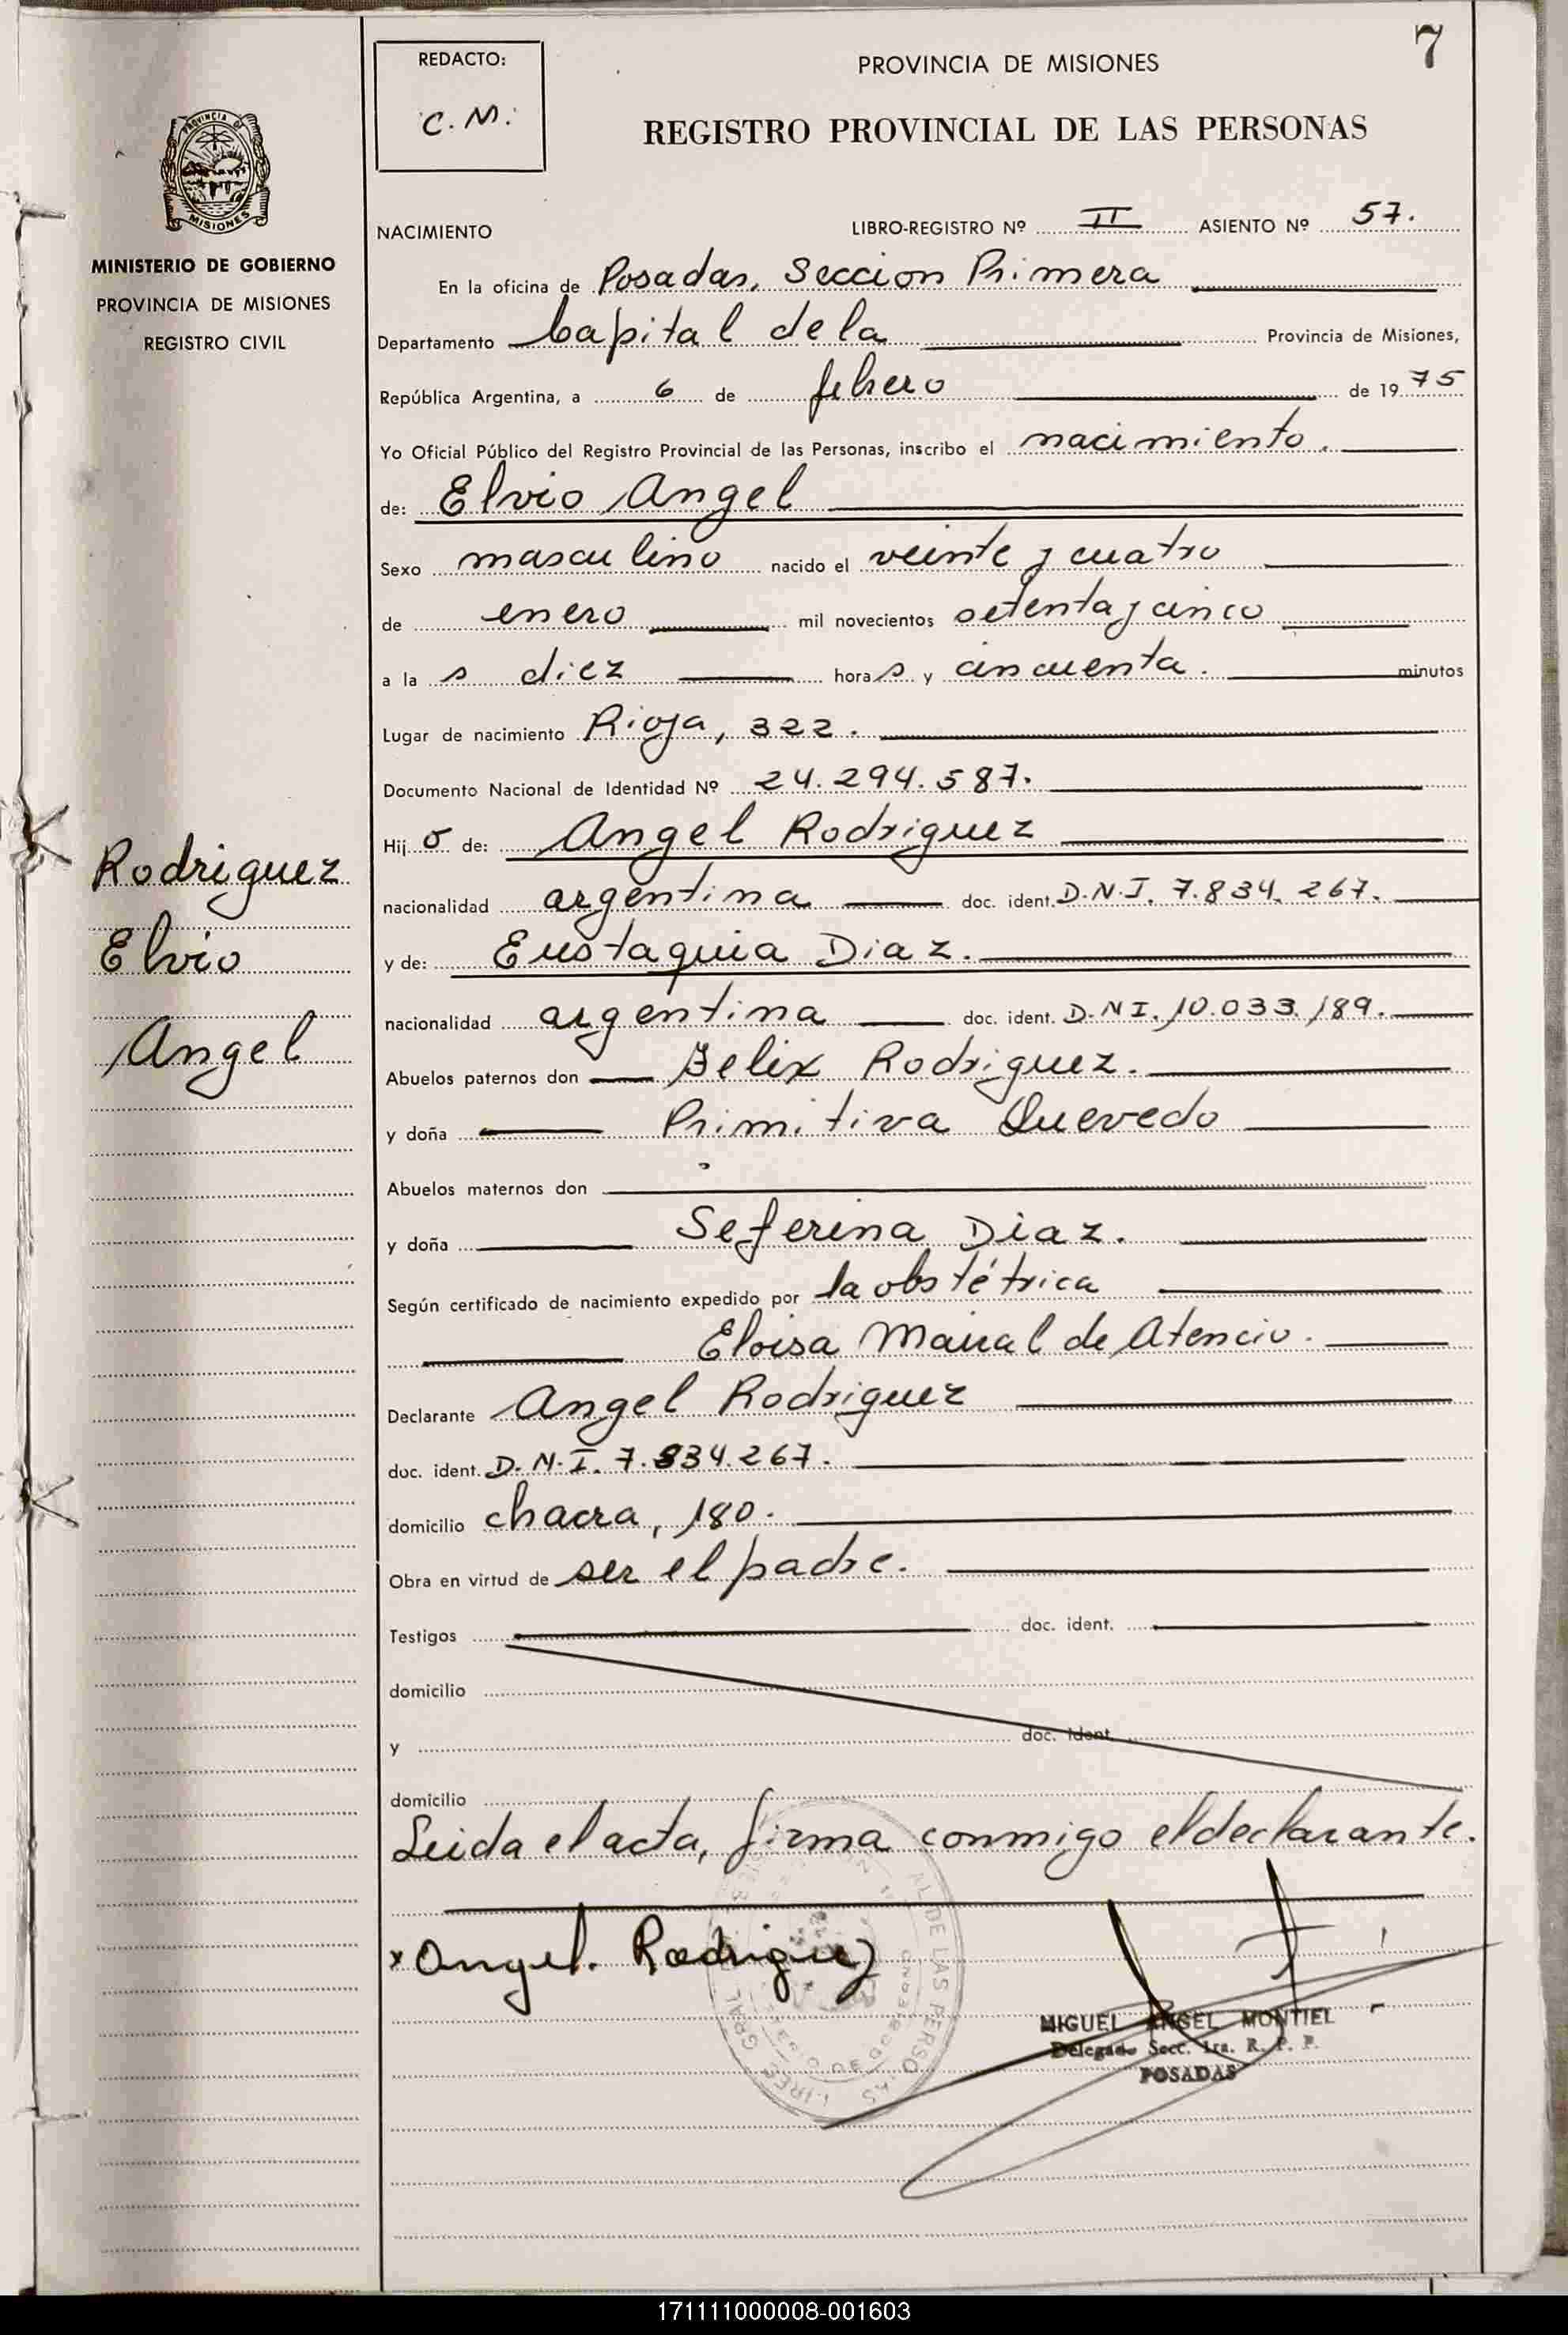 7
REDACTO:
C. M.
PROVINCIA DE MISIONES
REGISTRO PROVINCIAL DE LAS PERSONAS
PROVINCIA DE
MISIONES
MINISTERIO DE GOBIERNO
PROVINCIA DE MISIONES
REGISTRO CIVIL
NACIMIENTO LIBRO-REGISTRO Nº II ASIENTO Nº 57.
En la oficina de Posadas, Seccion Primera
Departamento Capital de la Provincia de Misiones,
República Argentina, a 6 de febrero de 1975
Yo Oficial Público del Registro Provincial de las Personas, inscribo el nacimiento.
de: Elvio Angel
Sexo masculino nacido el veinte y cuatro
de enero mil novecientos setenta y cinco
a la s diez hora s y cincuenta. minutos
Lugar de nacimiento Rioja, 322.
Documento Nacional de Identidad Nº 24.294.587.
Hij o de: Angel Rodriguez
nacionalidad argentina doc. ident. D.N.I. 7.834.267.
y de: Eustaquia Diaz.
nacionalidad argentina doc. ident. D.N.I. 10.033.189.
Abuelos paternos don Felix Rodriguez.
y doña Primitiva Quevedo
Abuelos maternos don
y doña Seferina Diaz.
Según certificado de nacimiento expedido por la obstétrica
Eloisa de Atencio.
Declarante Angel Rodriguez
doc. ident. D.N.I. 7.834.267.
domicilio chacra, 180.
Obra en virtud de ser el padre.
Testigos doc. ident.
domicilio
y doc. ident.
domicilio
Leida el acta, firma conmigo el declarante.
x Angel. Rodriguez
MIGUEL ANGEL MONTIEL
Delegado Secc. 1ra. R. P. P.
POSADAS
Rodriguez
Elvio
Angel
171111000008-001603